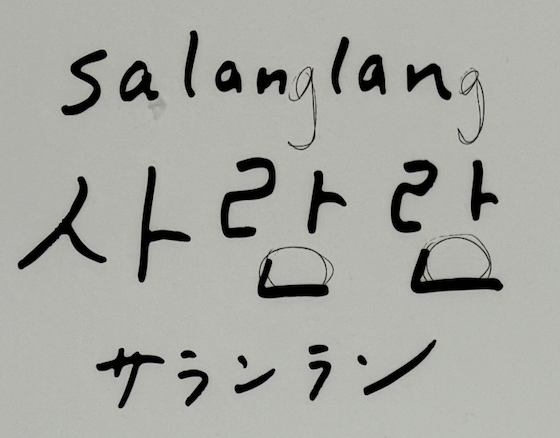 salanglang
사란란
サランラン